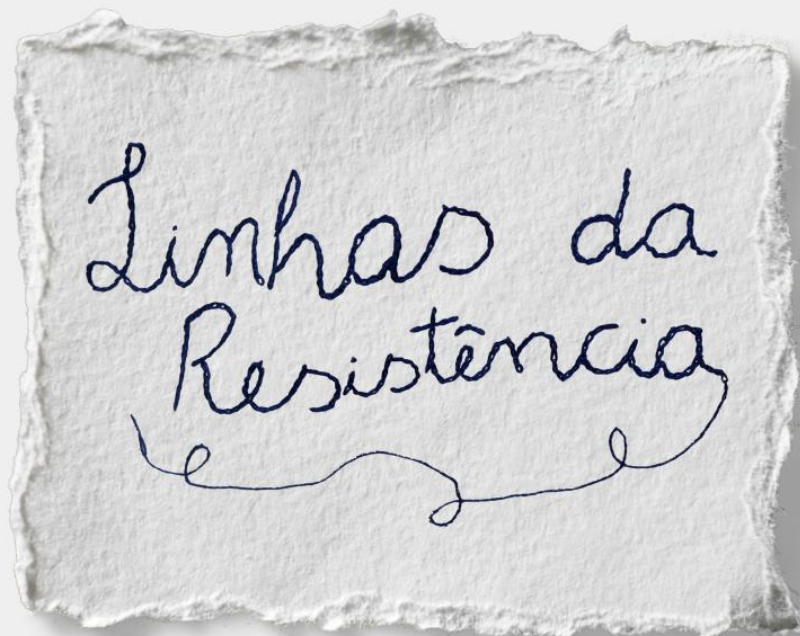 Linhas da
Resistência